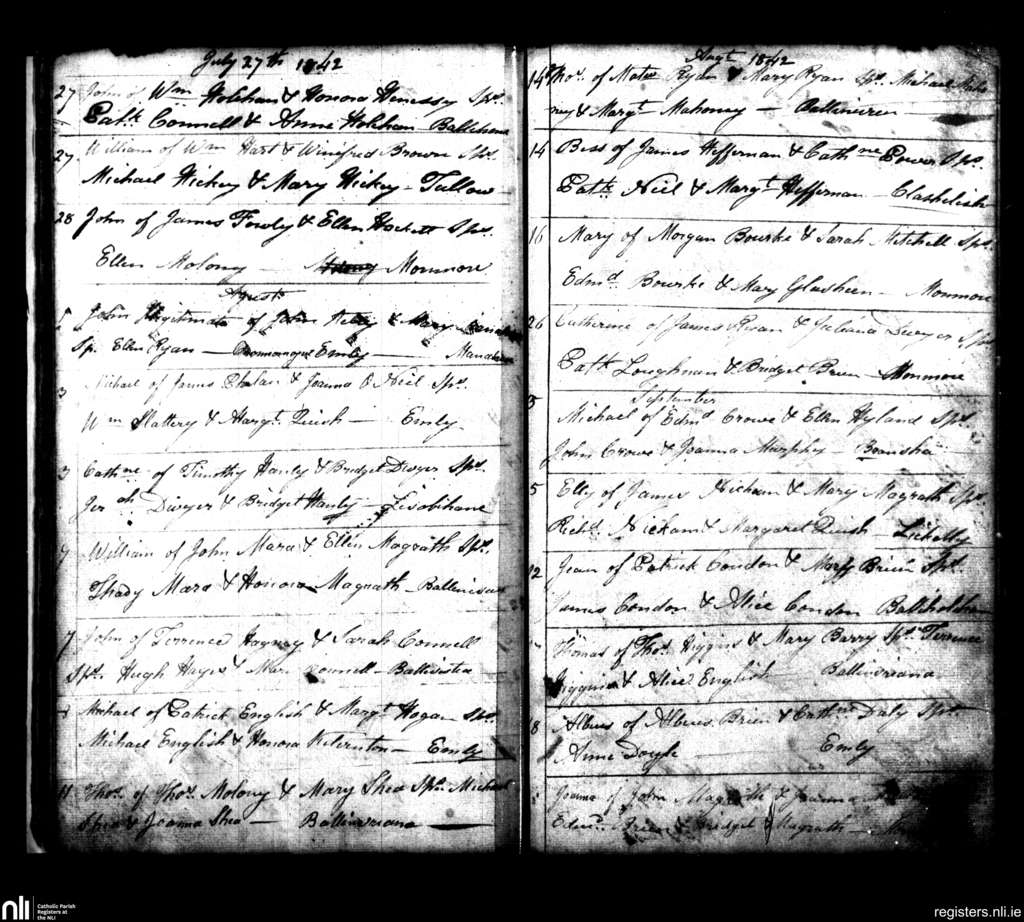 July 27th 1842
27 John of Wm Holohan & Honora Henessy Sps.
Patk Connell & Anne Holohan
27 William of Wm Hart & Winifred Brown Sps.
Michael Hickey & Mary Hickey - Tallow
28 John of James Fooly & Ellen Hackett Sps.
Ellen Molony — Monmore
August
John of John & Mary
Sp. Ellen Ryan — Emly —
3 Michael of James Phelan & Joanna O Neil Sps.
Wm Slattery & Margt. Quish — Emly -
3 Cathne. of Timothy Hanly & Bridget Dwyer Sps.
Jer Dwyer & Bridget Hanly - Lisobihane
7 William of John Mara & Ellen Magrath Sps.
Thady Mara & Honora Magrath -
7 John of Terrence & Sarah Connell
Sps. Hugh Hayes & Mar. Connell -
Michael of Patrick English & Margt Hogan Sps.
Michael English & Honora — Emly
11 Thos. of Thos. Molony & Mary Shea Sps. Michael
Shea & Joanna Shea — Ballinvreana
Augt 1842
14 Thos. of Mattw Ryan & Mary Ryan Sps. Michael Maho
ney & Margt. Mahoney —
14 Bess of James Heffernan & Cathne Power Sps.
Patk Neil & Margt. Heffernan -
16 Mary of Morgan Bourke & Sarah Mitchell Sps.
Edmd. Bourke & Mary Glasheen - Monmore
26 Catherine of James Ryan & Juliana Dwyer Sps
Patk Loughman & Bridget Brien - Monmore
September
3 Michael of Edmd Crowe & Ellen Hyland Sps.
John Crowe & Joanna Murphy - Bansha
5 Elly of James & Mary Magrath Sps
Richd. & Margaret Quish -
12 Jean of Patrick Condon & Mary Brien Sps.
James Condon & Alice Condon
Thomas of Thos. Higgins & Mary Barry Sps. Terrence
Higgins & Alice English Ballinvreana
18 Albeus of Albeus Brien & Cathne Daly Sps.
Anne Doyle Emly
Joanna of John Magrath & Joanna
Edmd. & Bridget Magrath -
nli
Catholic Parish
Registers at
the NLI
registers.nli.ie